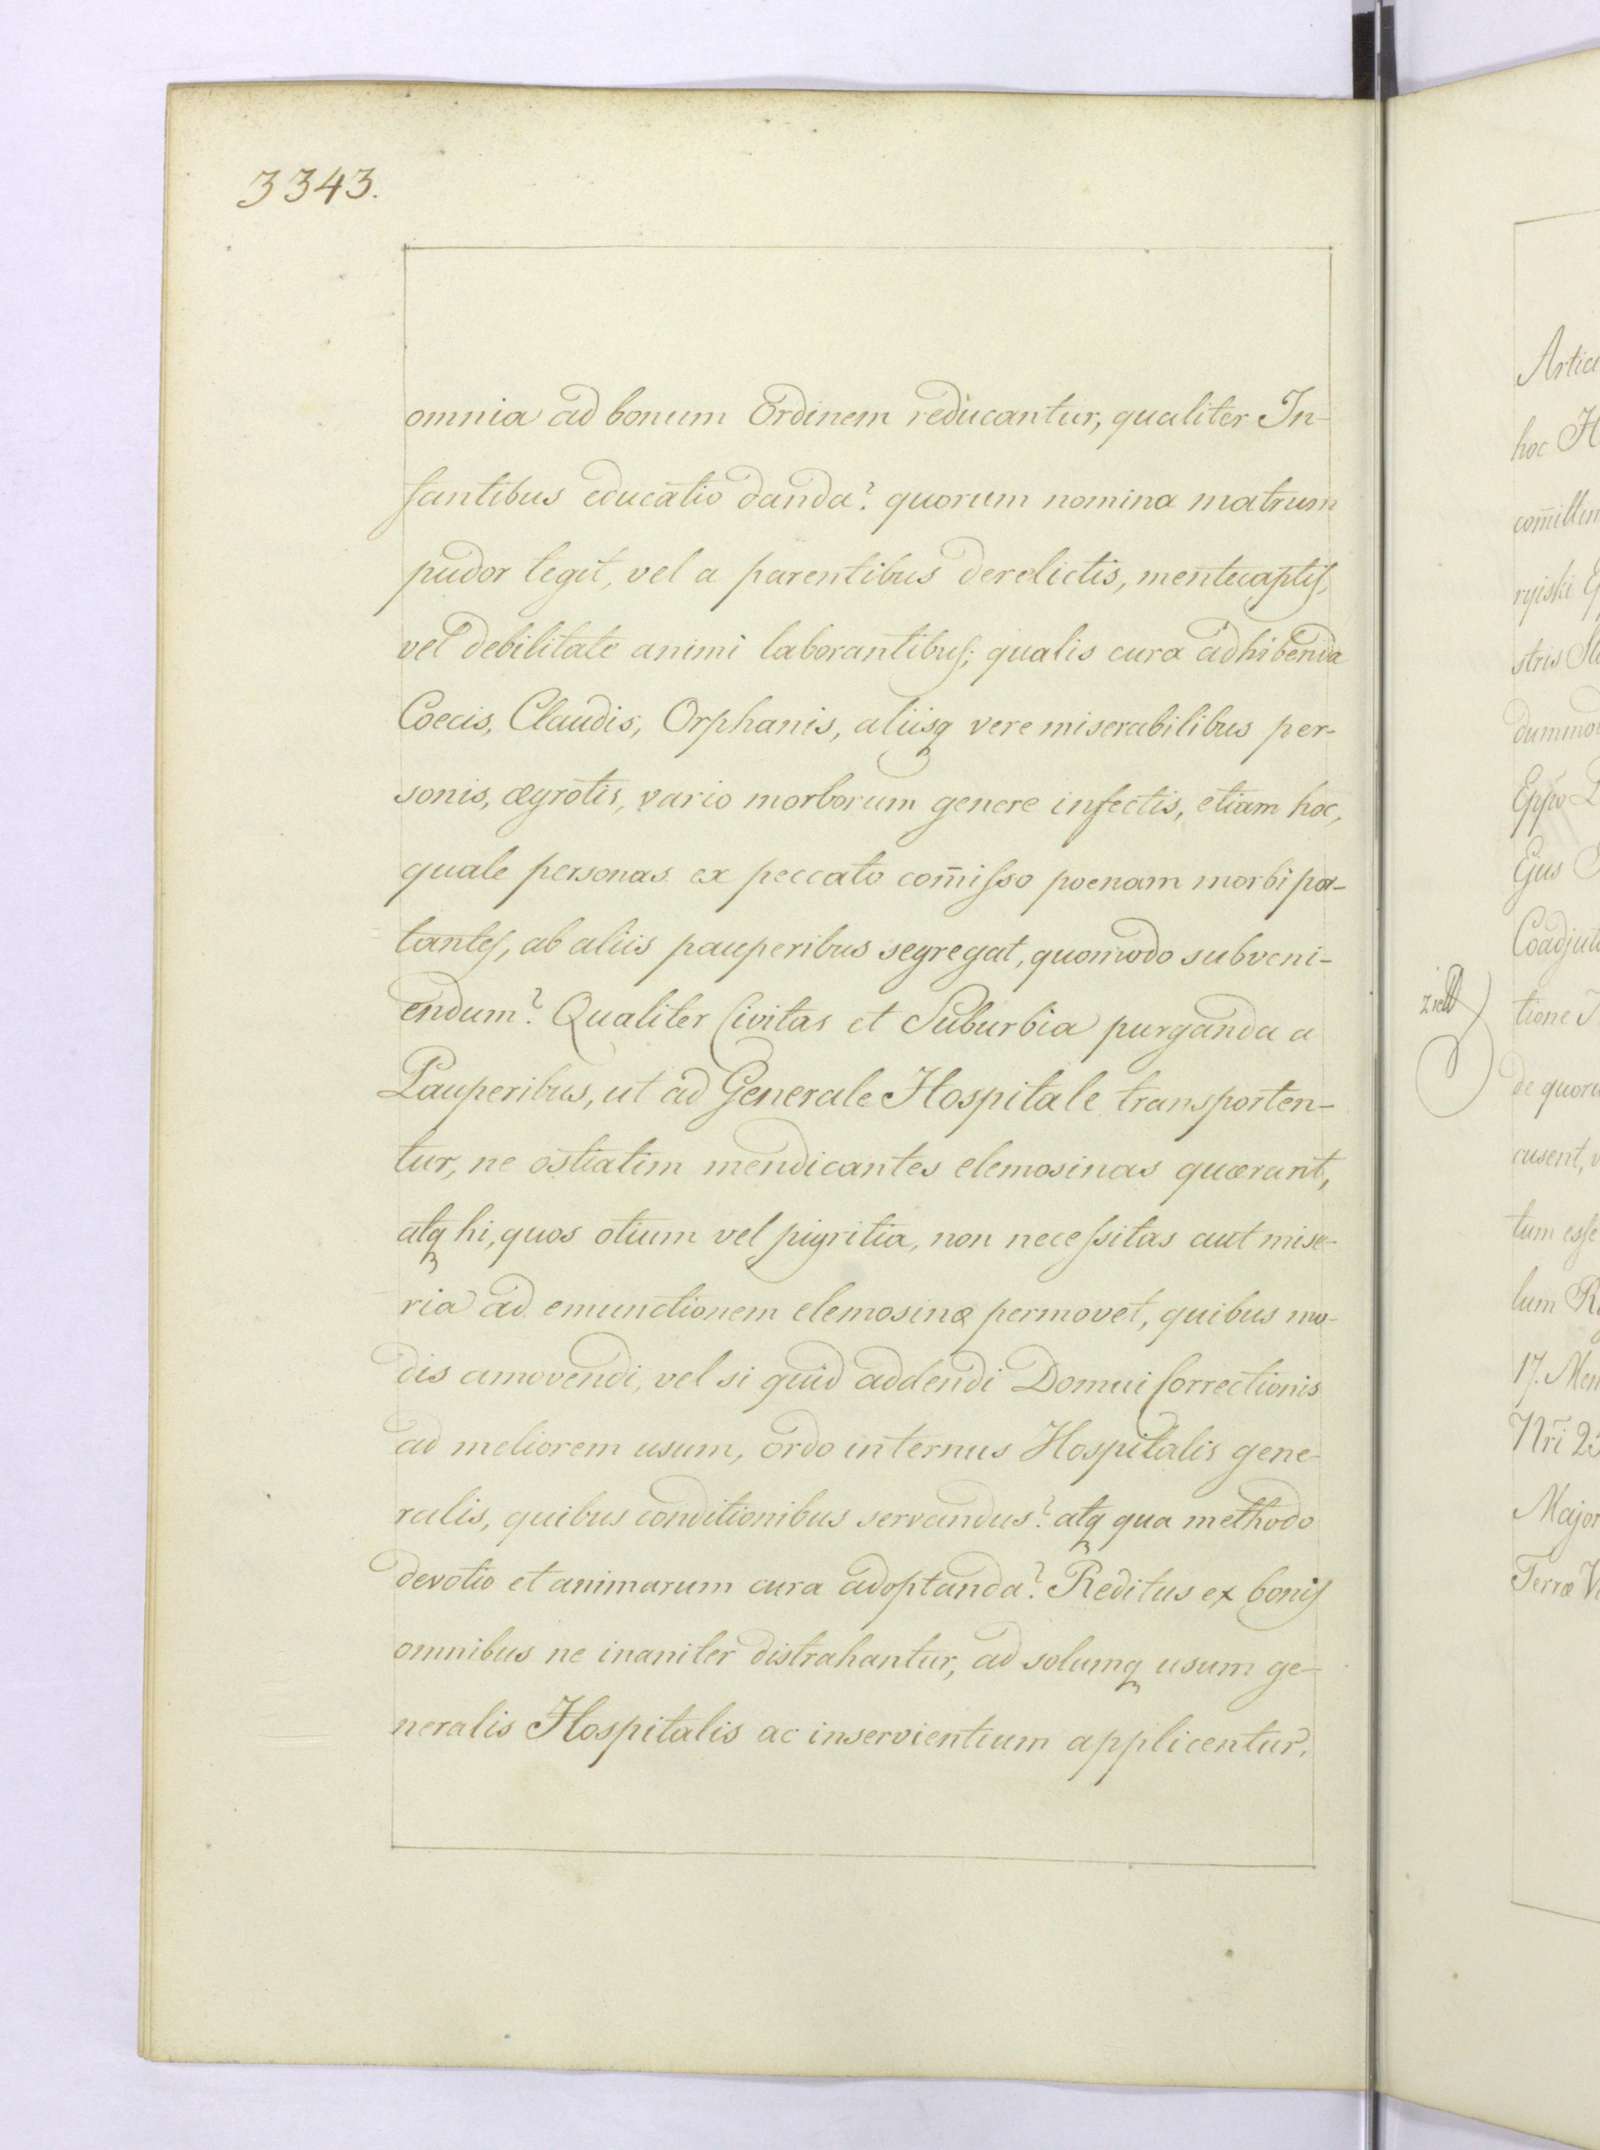 3343.
omnia ad bonum Ordinem reducantur, qualiter In-
fantibus educatio danda? quorum nomina matrum
pudor tegit, vel a parentibus derelictis, mentecaptis,
vel debilitate animi laborantibus; qualis cura adhibenda
Coecis, Claudis, Orphanis, aliisq vere miserabilibus per-
sonis, ægrotis, vario morborum genere infectis, etiam hoc,
quale personas ex peccato com̄isso poenam morbi por-
tantes, ab aliis pauperibus segregat, quomodo subveni-
endum? Qualiter Civitas et Suburbia purganda a
Pauperibus, ut ad Generale Hospitale transporten-
tur, ne ostiatim mendicantes elemosinas quærant,
atq hi, quos otium vel pigritia, non necessitas aut mise-
ria ad emunctionem elemosinæ permovet, quibus mo-
dis amovendi, vel si quid addendi Domui Correctionis
ad meliorem usum, ordo internus Hospitalis gene-
ralis, quibus conditionibus servandus? atq qua methodo
devotio et animarum cura adoptanda? Reditus ex bonis
omnibus ne inaniter distrahantur, ad solumq usum ge-
neralis Hospitalis ac inservientium applicentur.
Artic
hoc H
com̄itten
ryiski
stris
dummod
Eppō
Ejus
Coadjut
tione
de quoru
cusent, v
tum esse
lum
17. Men
Nrī 25
Major
Terræ